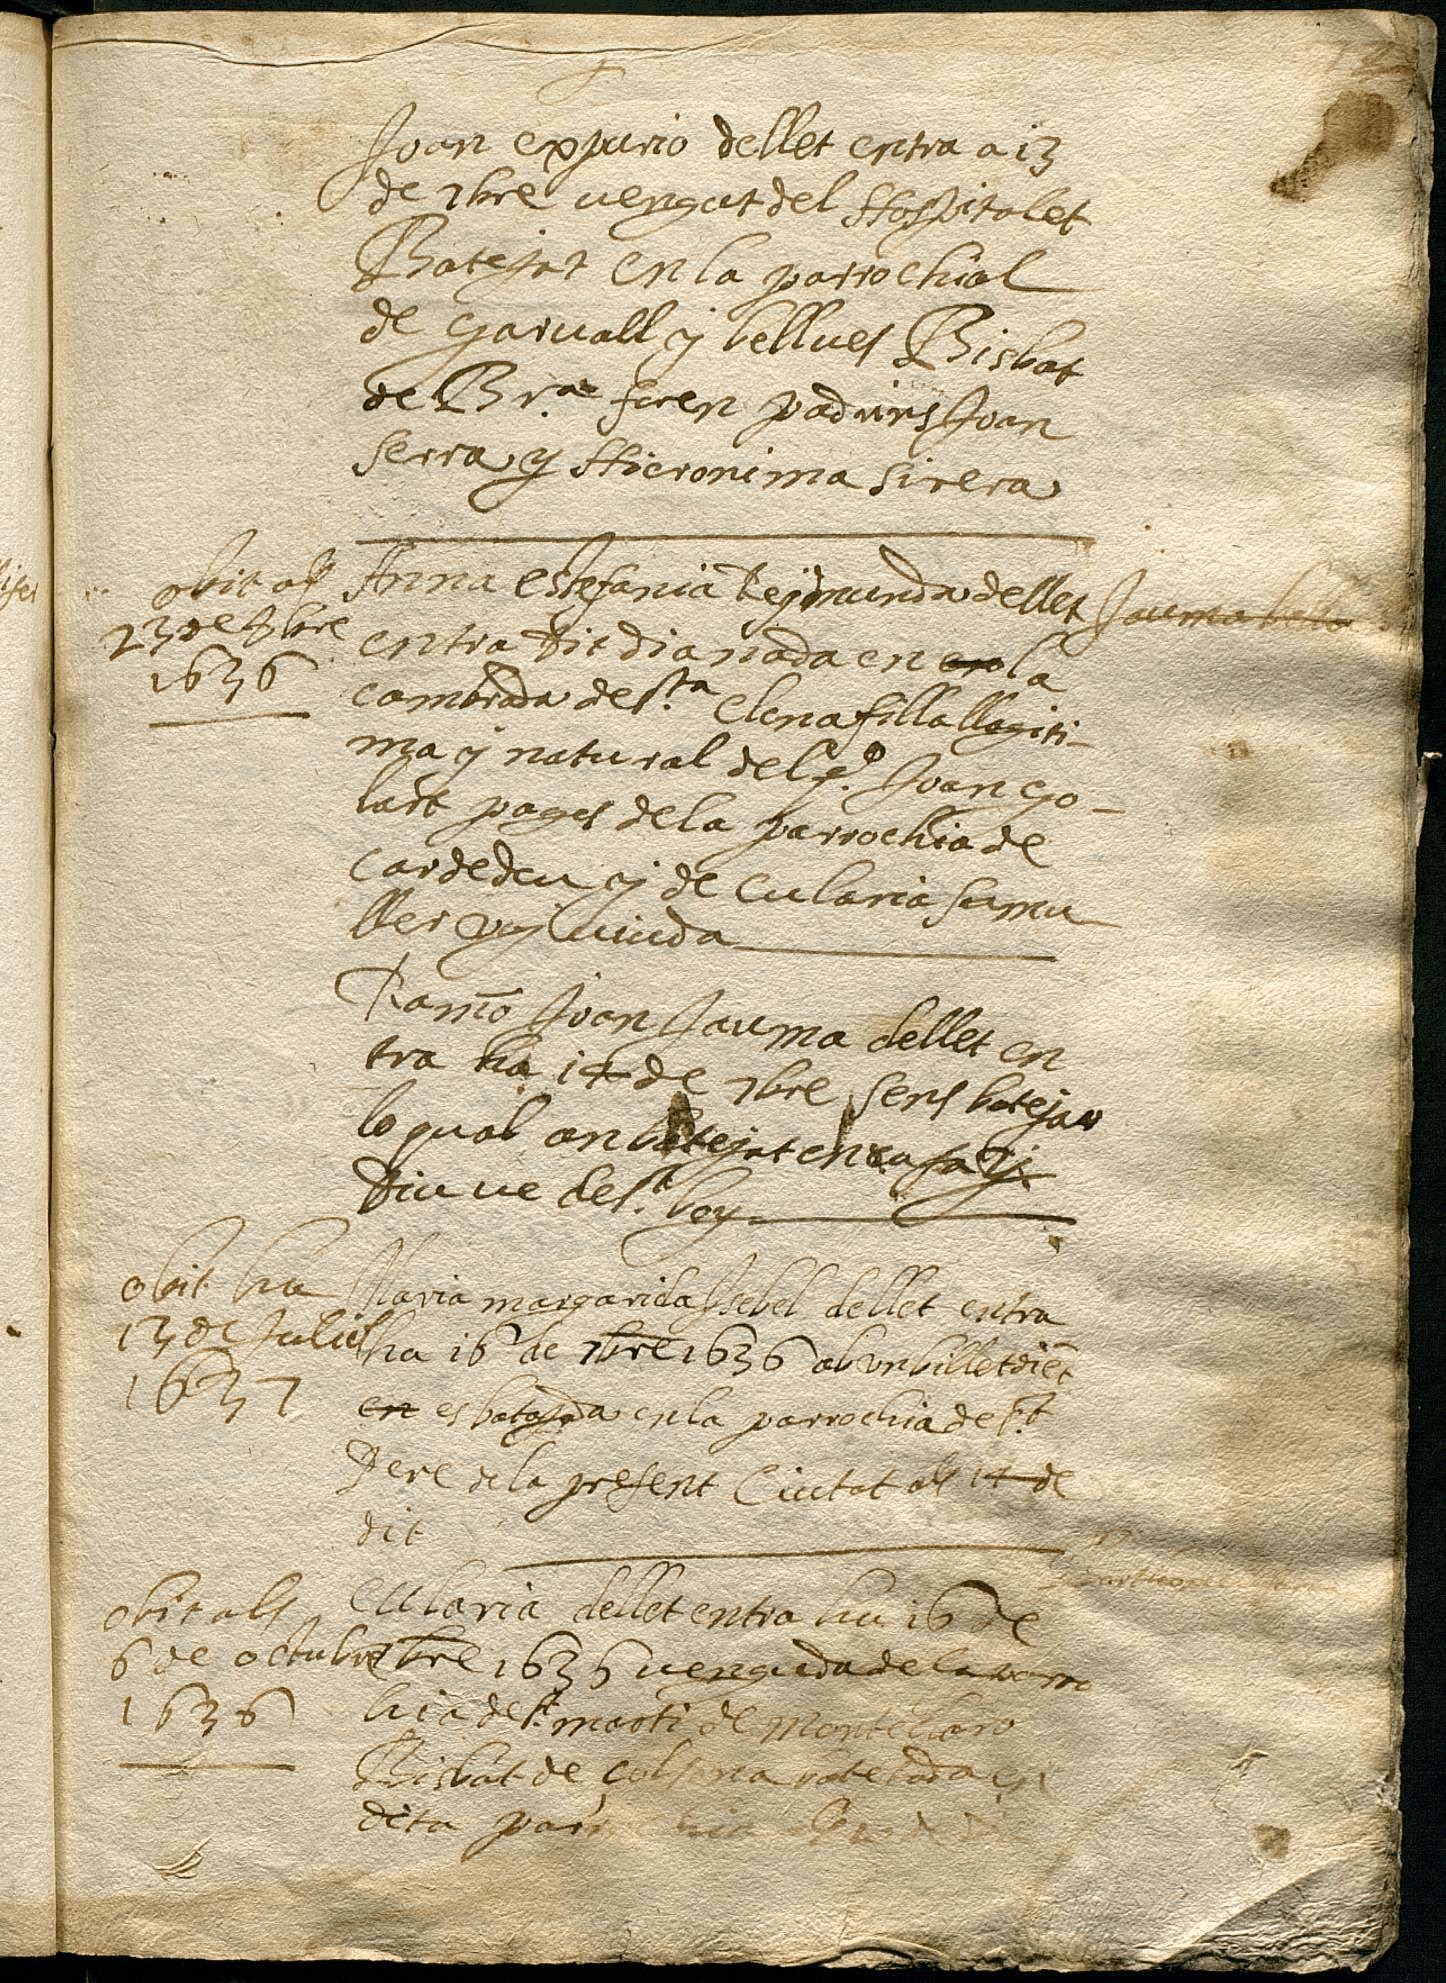 Joan expurio dellet entra a 13
de 7bre vengut del Hospitalet
Batejat en la parrochial
de garvall y bellves Bisbat
de Br.na foren padrins Joan
Serra y Hieronima Sirera
obit als
23 de 7bre
1636
Anna estefania Reymunda dellet
entra dit dia nada en la
cambrada de s.ta elena filla llagiti-
ma y natural del q.o Joan go-
lart pages de la parrochia de
cardedeu y de eularia sa mu
ller vuy viuda
Jauma
Ramō Joan Jauma dellet en
tra ha 14 de 7bre sens batejar
lo qual an batejat en casa y
diu ve de s.t boy
obit ha
13 de Juliol
1637
Maria margarida Isebel dellet entra
ha 16 de 7bre 1636 ab un billet diēt
en es batejada en la parrochia de s.t
Pere de la present Ciutat als 14 de
dit
obit als
6 de octubre
1636
eularia dellet entra ha 16 de
7bre 1636 venguda de la parro
hia de s.t marti de montclaro
Bisbat de solsona batejada en
dita parrochia